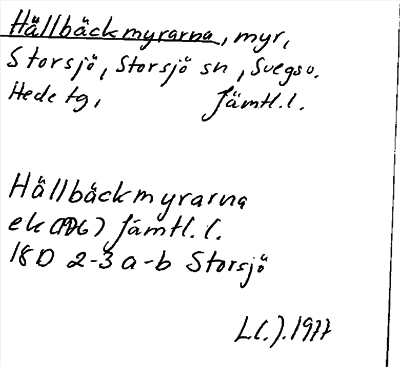 Hällbäckmyrarna, myr,
Storsjö, Storsjö sn, Svegs o.
Hede tg, Jämtl.l.
Hällbäckmyrarna
ek Jämtl.l.
18D 2-3 a-b Storsjö
1977